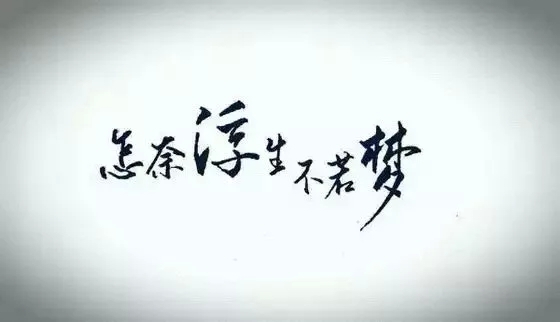 怎奈浮生不若梦